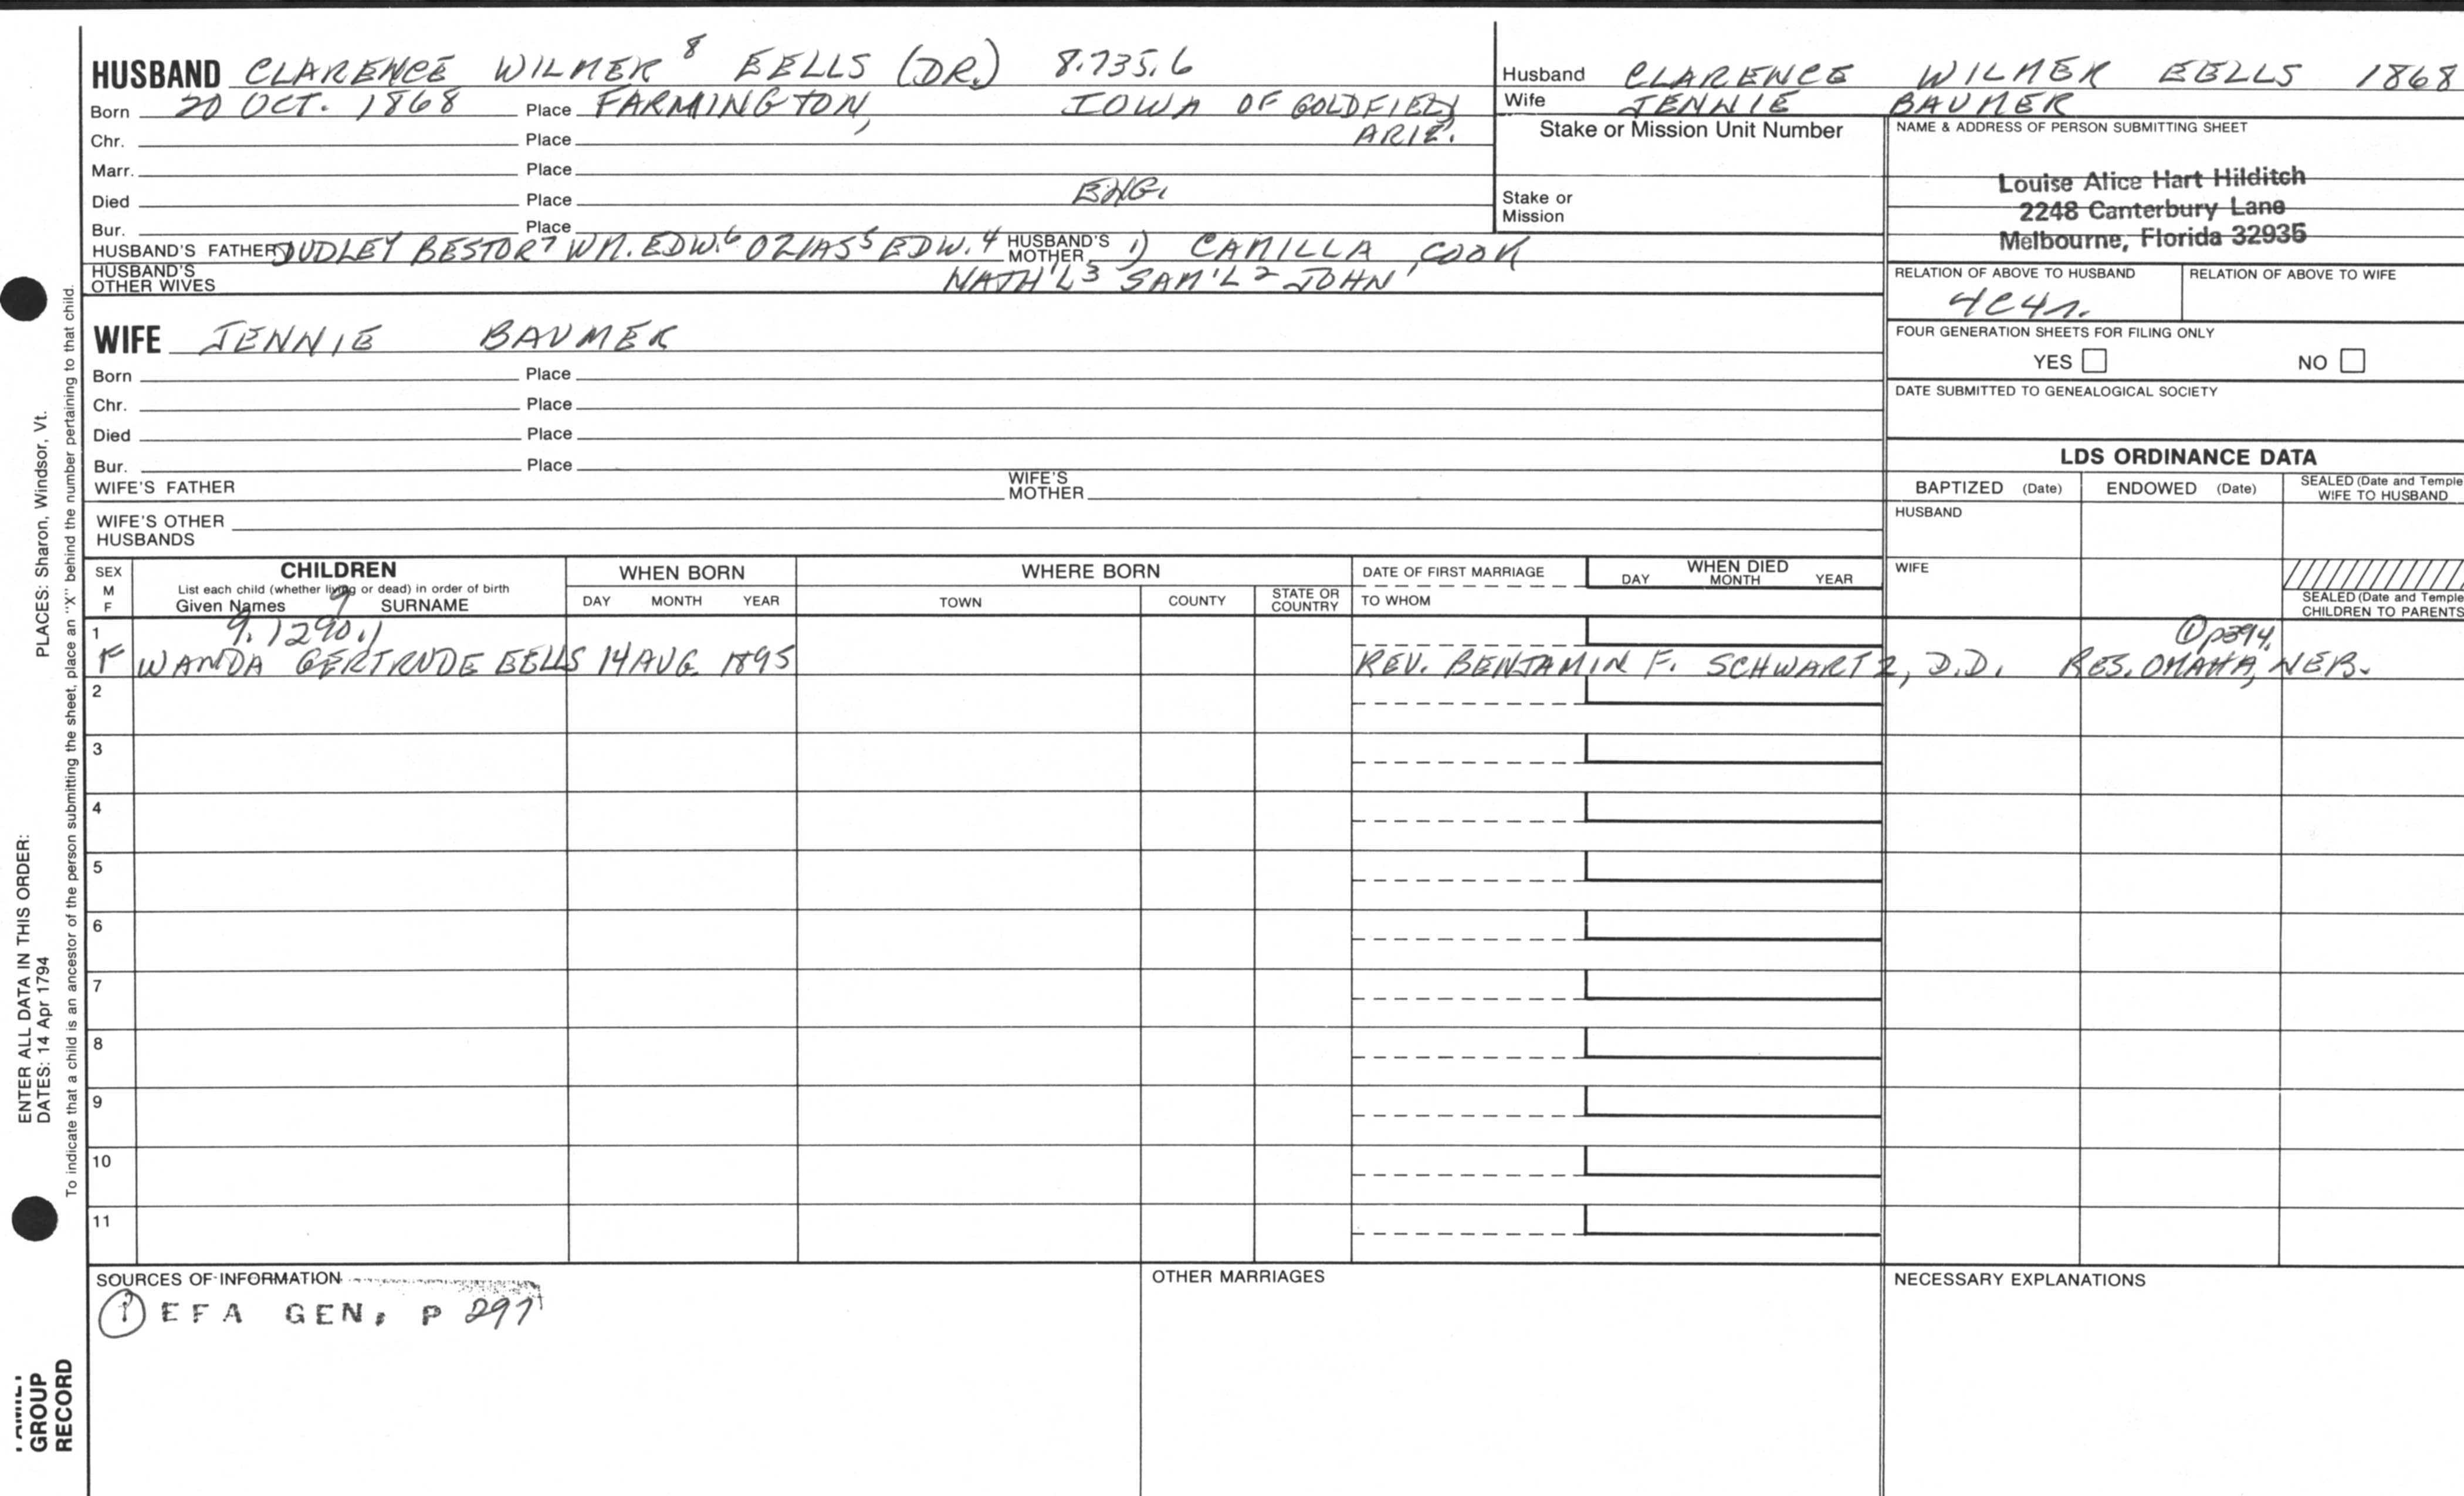 HUSBAND CLARENCE WILMER 8 EELLS (DR.) 8.735.6
Born 20 OCT. 1868 Place FARMINGTON, IOWA OF GOLDFIELD
Chr. Place ARIZ.
Marr. Place
Died Place ENG.
Bur. Place
HUSBAND'S FATHER DUDLEY BESTOR 7 WM. EDW. 6 OZIAS 5 EDW. 4 HUSBAND'S MOTHER 1) CAMILLA COOK
HUSBAND'S OTHER WIVES NATH'L 3 SAM'L 2 JOHN 1
WIFE JENNIE BAUMER
Born Place
Chr. Place
Died Place
Bur. Place
WIFE'S FATHER WIFE'S MOTHER
WIFE'S OTHER
HUSBANDS
Husband CLARENCE WILMER EELLS 1868
Wife JENNIE BAUMER
Stake or Mission Unit Number
Stake or
Mission
NAME & ADDRESS OF PERSON SUBMITTING SHEET
Louise Alice Hart Hilditch
2248 Canterbury Lane
Melbourne, Florida 32935
RELATION OF ABOVE TO HUSBAND RELATION OF ABOVE TO WIFE
4C4r.
FOUR GENERATION SHEETS FOR FILING ONLY
YES NO
DATE SUBMITTED TO GENEALOGICAL SOCIETY
LDS ORDINANCE DATA
BAPTIZED (Date) ENDOWED (Date) SEALED (Date and Temple
WIFE TO HUSBAND
HUSBAND
WIFE
SEALED (Date and Temple
CHILDREN TO PARENTS
SEX
M
F
CHILDREN
List each child (whether living or dead) in order of birth
Given Names 9 SURNAME
WHEN BORN
DAY MONTH YEAR
WHERE BORN
TOWN COUNTY STATE OR COUNTRY
DATE OF FIRST MARRIAGE
TO WHOM
WHEN DIED
DAY MONTH YEAR
1 9.1290.1 ① p394.
F WANDA GERTRUDE EELLS 14 AUG. 1895 REV. BENJAMIN F. SCHWARTZ, D.D. RES. OMAHA, NEB.
2
3
4
5
6
7
8
9
10
11
SOURCES OF INFORMATION
① EFA GEN. P 297
OTHER MARRIAGES
NECESSARY EXPLANATIONS
PLACES: Sharon, Windsor, Vt.
To indicate that a child is an ancestor of the person submitting the sheet, place an "X" behind the number pertaining to that child.
ENTER ALL DATA IN THIS ORDER:
DATES: 14 Apr 1794
FAMILY
GROUP
RECORD